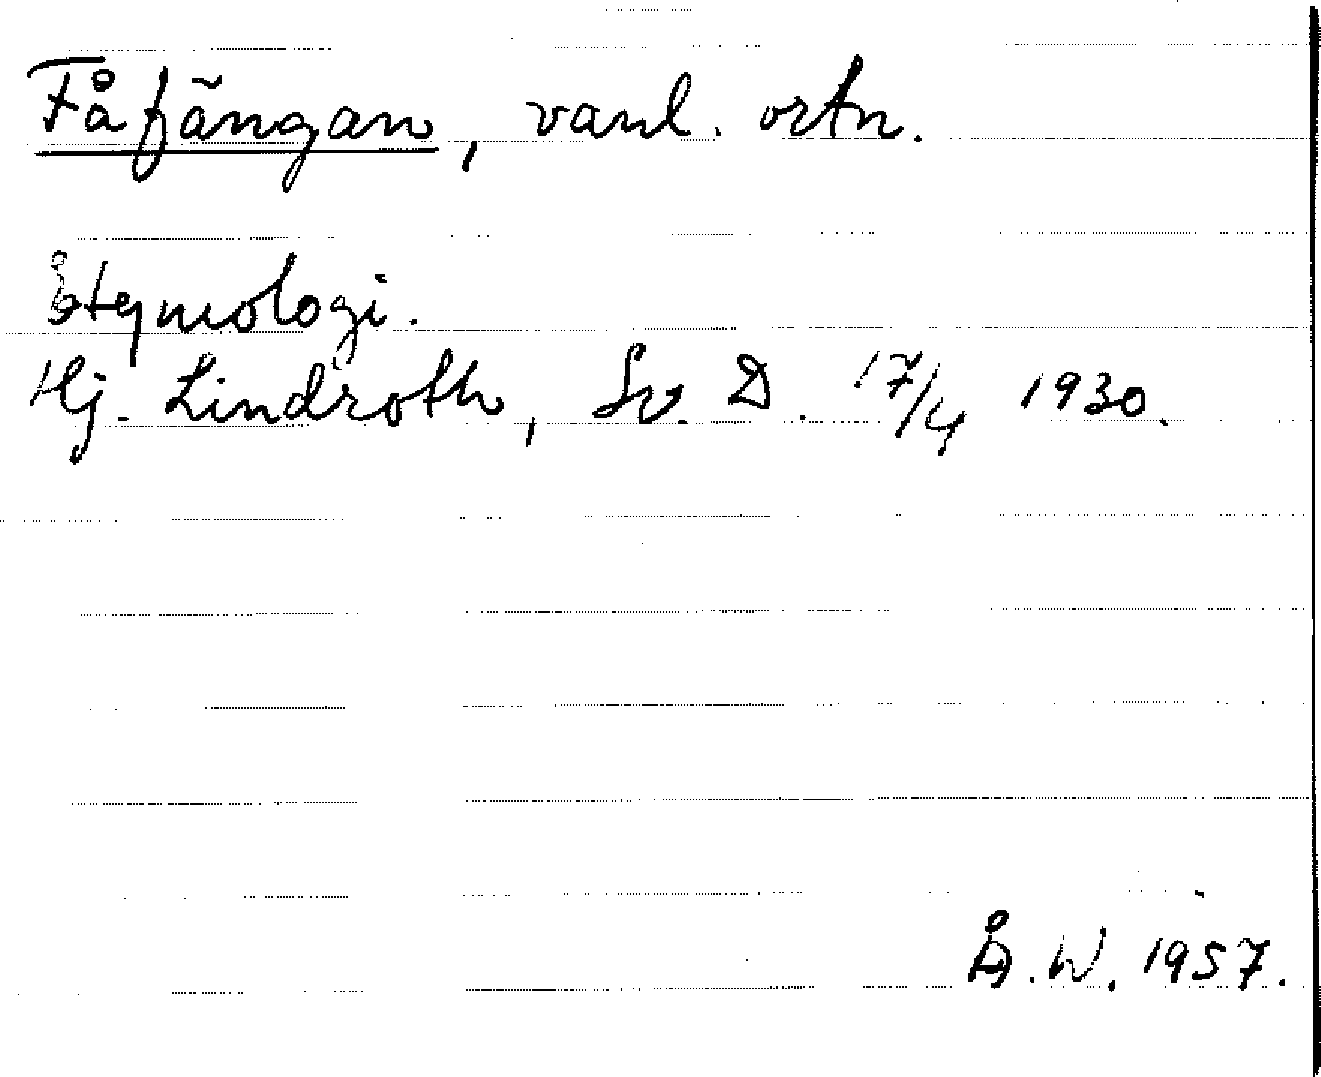 Fåfängan, vanl. ortn.
Etymologi.
Hj. Lindroth, Sv. D. 17/4 1930.
Å.W. 1957.